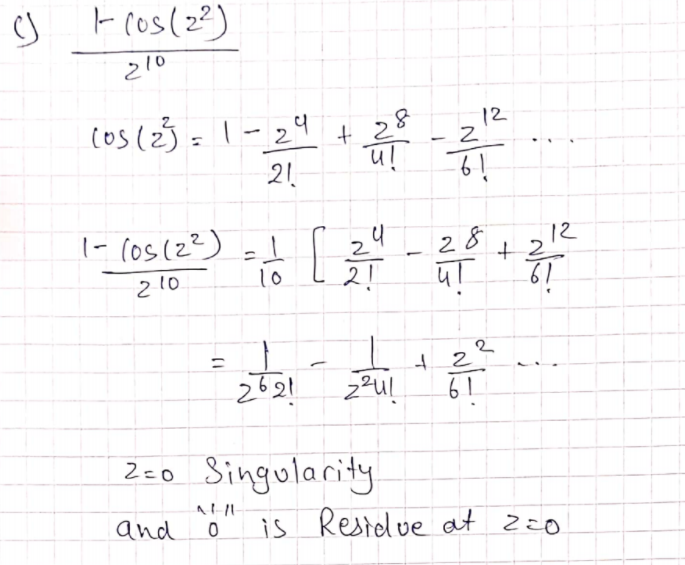 c) 1-cos(z²)/z¹⁰
cos(z²) = 1 - z⁴/2! + z⁸/4! - z¹²/6! ....
1-cos(z²)/z¹⁰ = 1/10 [ z⁴/2! - z⁸/4! + z¹²/6!
= 1/z⁶2! - 1/z²4! + z²/6! ...
z=0 Singularity
and "0" is Residue at z=0